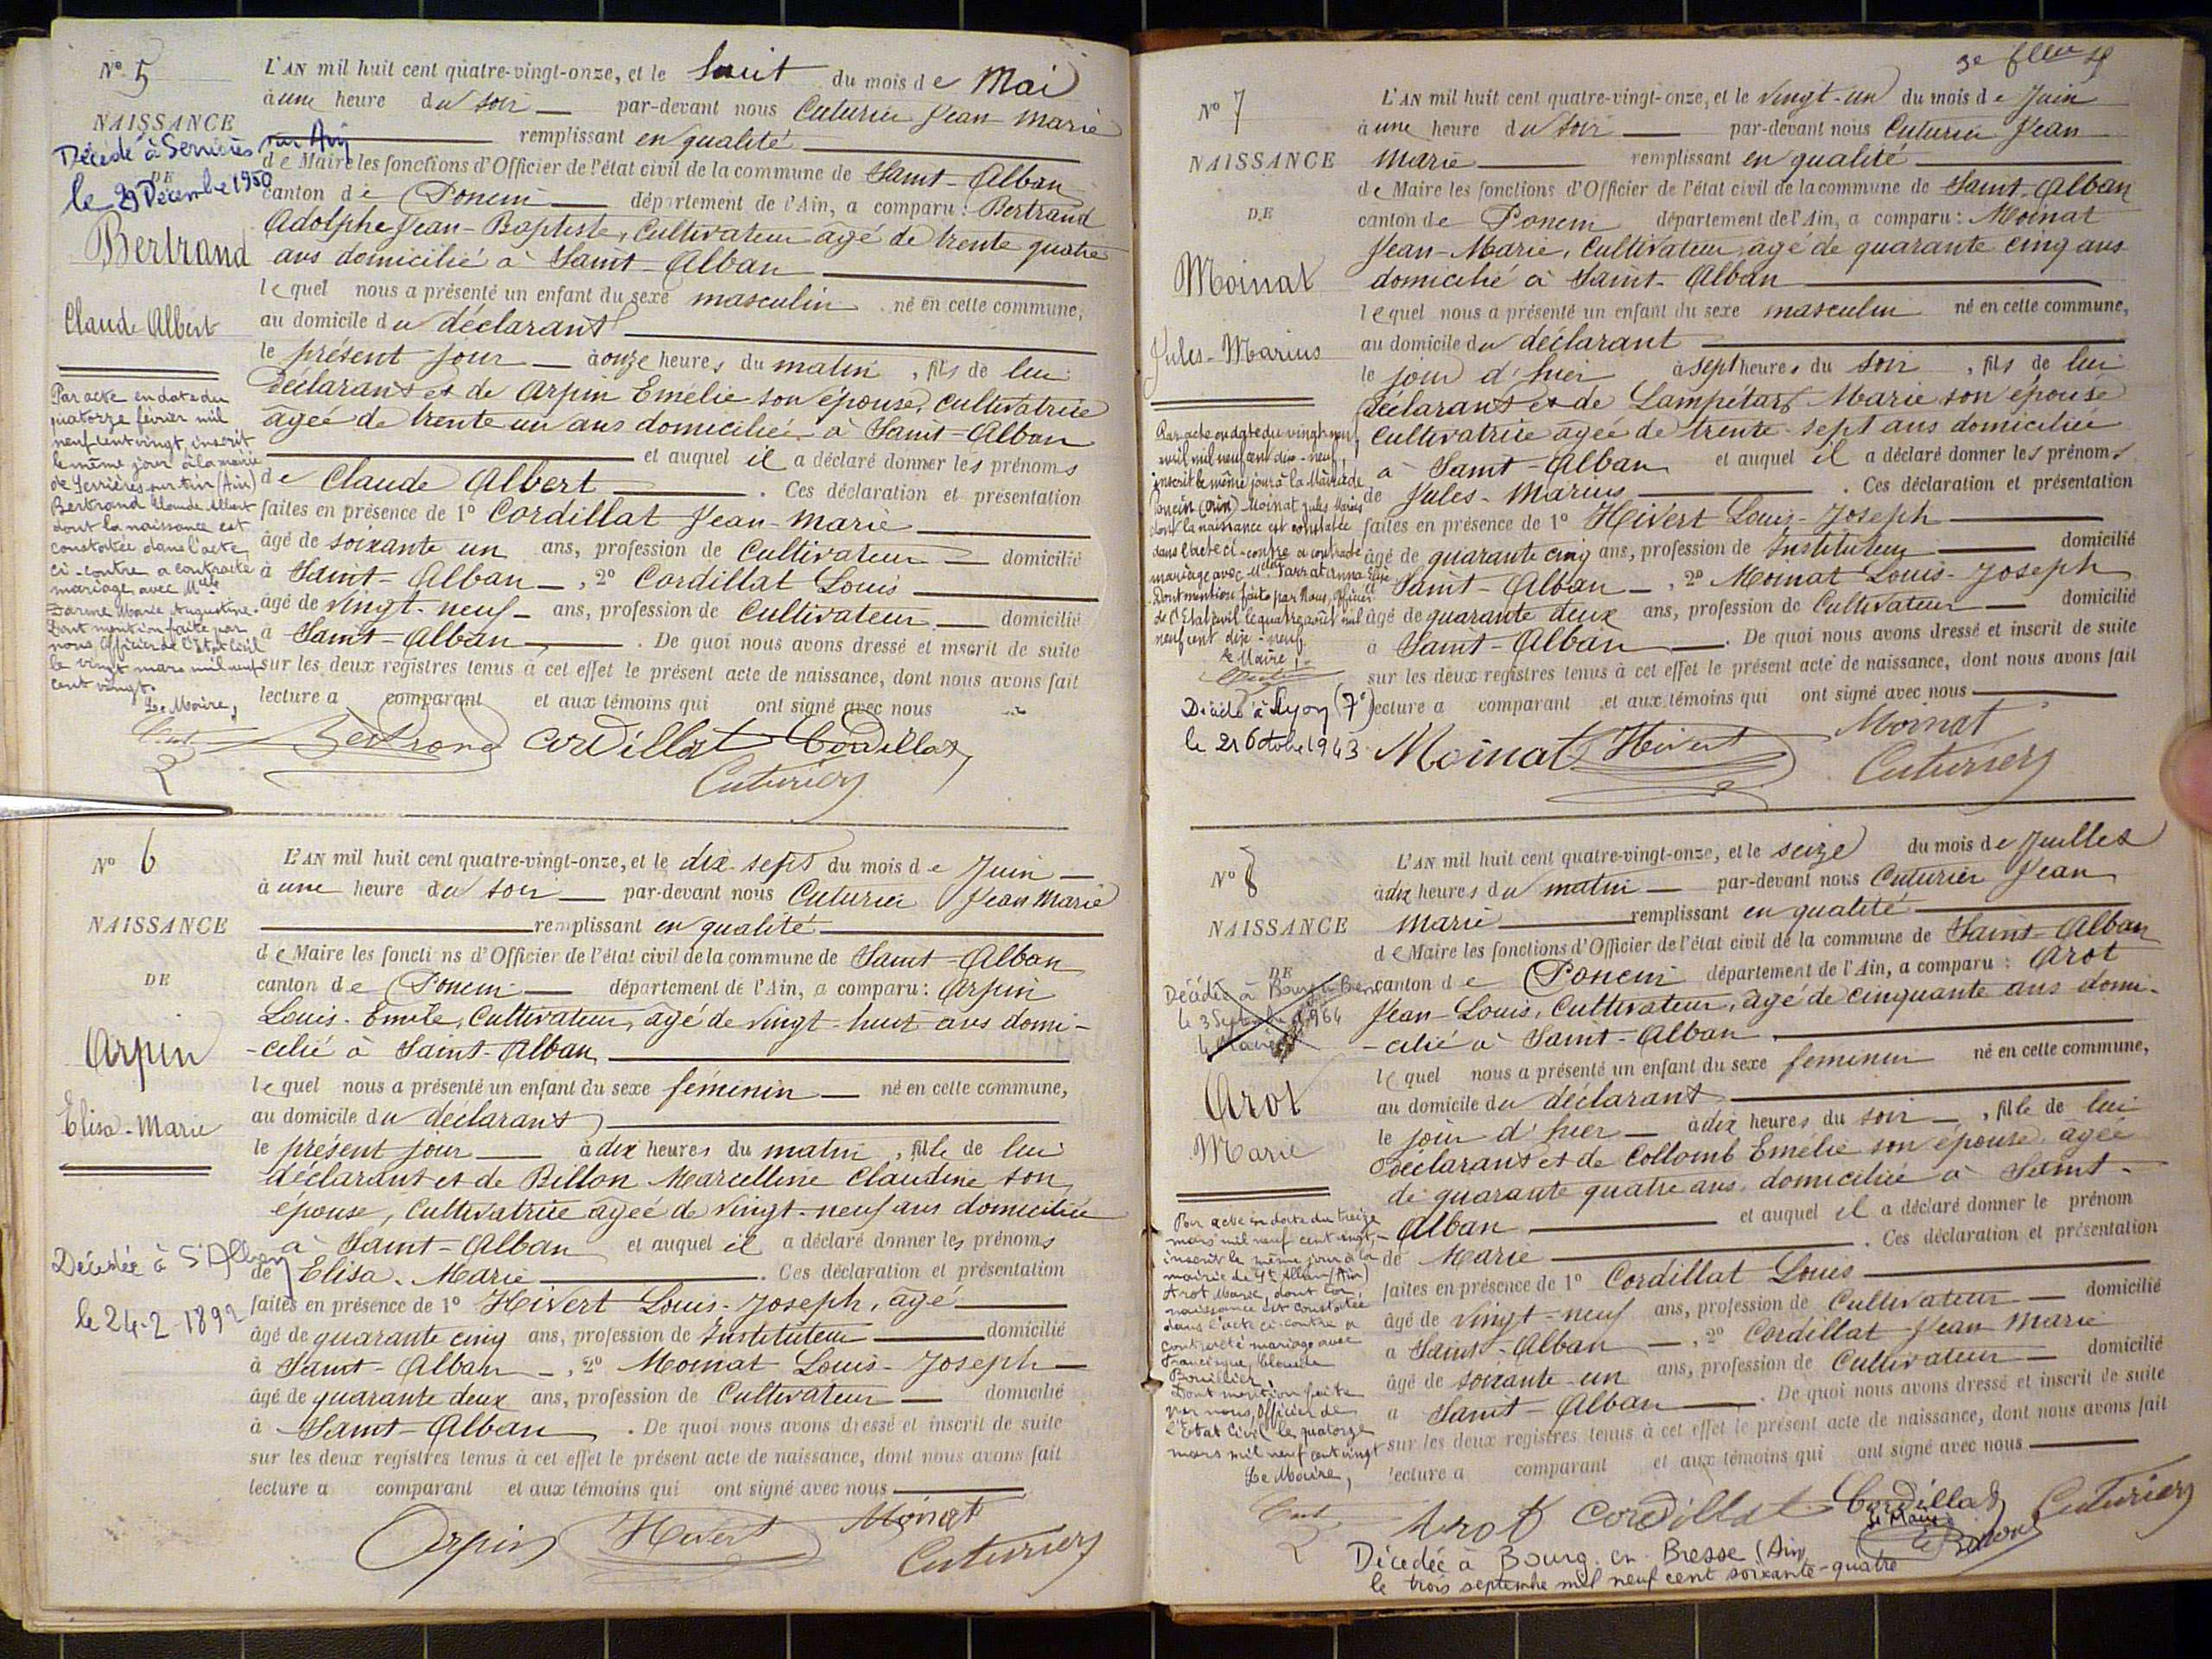 N° 5
L'AN mil huit cent quatre-vingt-onze, et le huit du mois de Mai
à une heure du soir par-devant nous Cuturier Jean Marie
NAISSANCE
remplissant en qualité
Décédé à Serrières sur Ain
de Maire les fonctions d'Officier de l'état civil de la commune de Saint-Alban
DE
le 29 Décembre 1950
canton de Poncin département de l'Ain, a comparu : Bertrand
Adolphe Jean-Baptiste, Cultivateur agé de trente quatre
Bertrand
ans domicilié à Saint-Alban
lequel nous a présenté un enfant du sexe masculin né en cette commune,
Claude Albert
au domicile du déclarant
le présent jour à onze heures du matin, fils de lui
déclarant et de Arpin Emélie son épouse, cultivatrice
agée de trente un ans domiciliée à Saint-Alban
et auquel il a déclaré donner les prénoms
de Claude Albert. Ces déclaration et présentation
faites en présence de 1° Cordillat Jean-Marie
âgé de soixante un ans, profession de Cultivateur domicilié
à Saint-Alban, 2° Cordillat Louis
âgé de vingt-neuf ans, profession de Cultivateur domicilié
à Saint-Alban. De quoi nous avons dressé et inscrit de suite
sur les deux registres tenus à cet effet le présent acte de naissance, dont nous avons fait
lecture a comparant et aux témoins qui ont signé avec nous
Par acte en date du
quatorze février mil
neuf cent vingt, inscrit
le même jour à la mairie
de Serrières sur Ain (Ain)
Bertrand Claude Albert
dont la naissance est
constatée dans l'acte
ci-contre a contracté
mariage avec Melle
Darme Marie Augustine.
Dont mention faite par
nous Officier de l'Etat Civil
le vingt mars mil neuf
cent vingt.
Le Maire,
Bertrand Cordillat Cordillat
Cuturier
N° 6
L'AN mil huit cent quatre-vingt-onze, et le dix sept du mois de Juin
à une heure du soir par-devant nous Cuturier Jean Marie
NAISSANCE
remplissant en qualité
de Maire les foncti ns d'Officier de l'état civil de la commune de Saint-Alban
DE
canton de Poncin département de l'Ain, a comparu : Arpin
Louis-Emile, Cultivateur, agé de vingt-huit ans domi-
Arpin
-cilié à Saint-Alban
lequel nous a présenté un enfant du sexe féminin né en cette commune,
Elisa-Marie
au domicile du déclarant
le présent jour à dix heures du matin, fille de lui
déclarant et de Billon Marcelline Claudine son
épouse, Cultivatrice agée de vingt-neuf ans domiciliée
à Saint-Alban et auquel il a déclaré donner les prénoms
Décédée à St Alban
de Elisa-Marie. Ces déclaration et présentation
le 24-2-1892
faites en présence de 1° Hivert Louis-Joseph, agé
âgé de quarante cinq ans, profession de Instituteur domicilié
à Saint-Alban, 2° Moinat Louis-Joseph
âgé de quarante deux ans, profession de Cultivateur domicilié
à Saint-Alban. De quoi nous avons dressé et inscrit de suite
sur les deux registres tenus à cet effet le présent acte de naissance, dont nous avons fait
lecture a comparant et aux témoins qui ont signé avec nous
Arpin Hivert Moinat
Cuturier
N° 7
L'AN mil huit cent quatre-vingt-onze, et le vingt-un du mois de Juin
à une heure du soir par-devant nous Cuturier Jean
NAISSANCE
Marie remplissant en qualité
de Maire les fonctions d'Officier de l'état civil de la commune de Saint-Alban
DE
canton de Poncin département de l'Ain, a comparu : Moinat
Jean-Marie, Cultivateur, agé de quarante cinq ans
Moinat
domicilié à Saint-Alban
lequel nous a présenté un enfant du sexe masculin né en cette commune,
Jules-Marius
au domicile du déclarant
le jour d'hier à sept heures du soir, fils de lui
déclarant et de Lampétaz Marie son épouse
Cultivatrice agée de trente-sept ans domiciliée
à Saint-Alban et auquel il a déclaré donner les prénoms
de Jules-Marius. Ces déclaration et présentation
faites en présence de 1° Hivert Louis-Joseph
âgé de quarante cinq ans, profession de Instituteur domicilié
à Saint-Alban, 2° Moinat Louis-Joseph
âgé de quarante deux ans, profession de Cultivateur domicilié
à Saint-Alban. De quoi nous avons dressé et inscrit de suite
sur les deux registres tenus à cet effet le présent acte de naissance, dont nous avons fait
lecture a comparant et aux témoins qui ont signé avec nous
Par acte en date du vingt neuf
avril mil neuf cent dix-neuf,
inscrit le même jour à la Mairie de
Poncin (Ain) Moinat Jules Marius
dont la naissance est constatée
dans l'acte ci-contre a contracté
mariage avec Melle
Dont mention faite par Nous, Officier
de l'Etat civil le quatre août mil
neuf cent dix-neuf
Le Maire,
Décédé à Lyon (7e)
le 21 Octobre 1943
Moinat Hivert Moinat
Cuturier
N° 8
L'AN mil huit cent quatre-vingt-onze, et le seize du mois de Juillet
à dix heures du matin par-devant nous Cuturier Jean
NAISSANCE
Marie remplissant en qualité
de Maire les fonctions d'Officier de l'état civil de la commune de Saint-Alban
DE
Décédée à Bourg en Bresse
le 3 Septembre 1964
le Maire
canton de Poncin département de l'Ain, a comparu : Arot
Jean-Louis, Cultivateur, agé de cinquante ans domi-
-cilié à Saint-Alban
lequel nous a présenté un enfant du sexe féminin né en cette commune,
Arot
au domicile du déclarant
Marie
le jour d'hier à dix heures du soir, fille de lui
déclarant et de Collomb Emélie son épouse, agée
de quarante quatre ans, domiciliée à Saint-
Alban et auquel il a déclaré donner le prénom
de Marie. Ces déclaration et présentation
faites en présence de 1° Cordillat Louis
âgé de vingt-neuf ans, profession de Cultivateur domicilié
à Saint-Alban, 2° Cordillat Jean Marie
âgé de soixante-un ans, profession de Cultivateur domicilié
à Saint-Alban. De quoi nous avons dressé et inscrit de suite
sur les deux registres tenus à cet effet le présent acte de naissance, dont nous avons fait
lecture a comparant et aux témoins qui ont signé avec nous
Par acte en date du treize
mars mil neuf cent vingt,
inscrit le même jour à la
mairie de St Alban (Ain)
Arot Marie, dont la
naissance est constatée
dans l'acte ci-contre a
contracté mariage avec
Francisque, Claude
Bouillier.
Dont mention faite
par nous, Officier de
l'Etat Civil le quatorze
mars mil neuf cent vingt
Le Maire,
Arot Cordillat Cordillat Cuturier
le Maire
Décédée à Bourg-en-Bresse (Ain)
le trois septembre mil neuf cent soixante-quatre